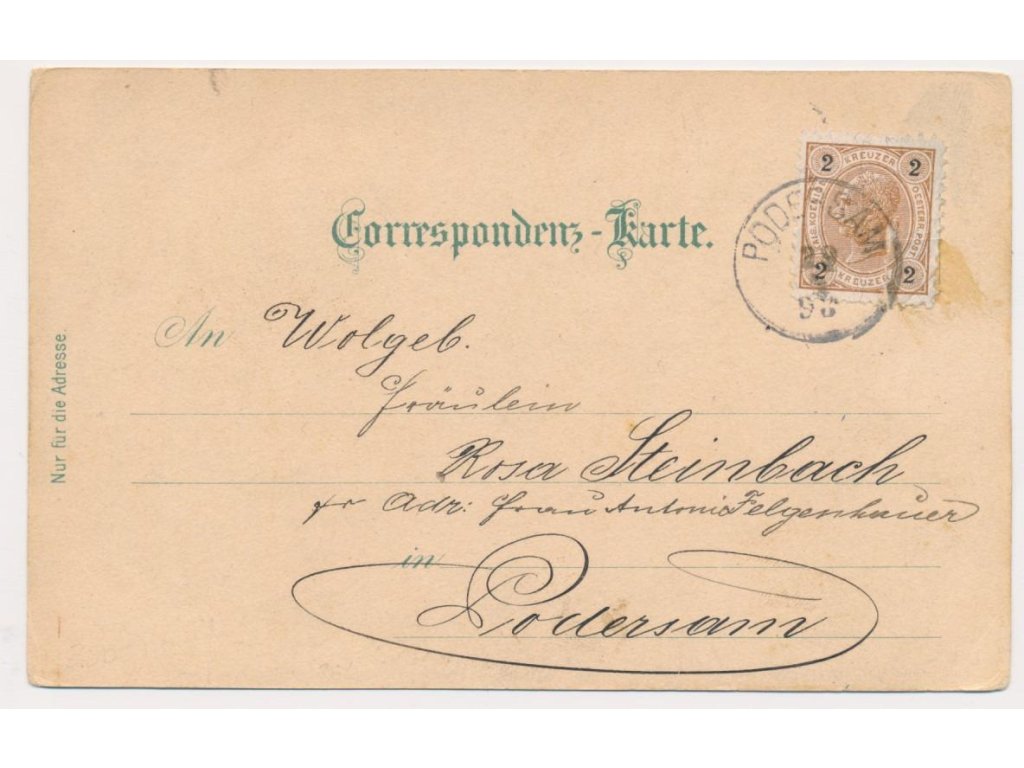 Correspondenz-Karte.
2 KREUZER 2
KAIS. KOENIGL. OESTERR. POST
2 KREUZER 2
PODERSAM
98
An Wolgeb.
Fräulein
Rosa Steinbach
pr Adr: Frau Antonia Felgenhauer
in
Podersam
Nur für die Adresse.